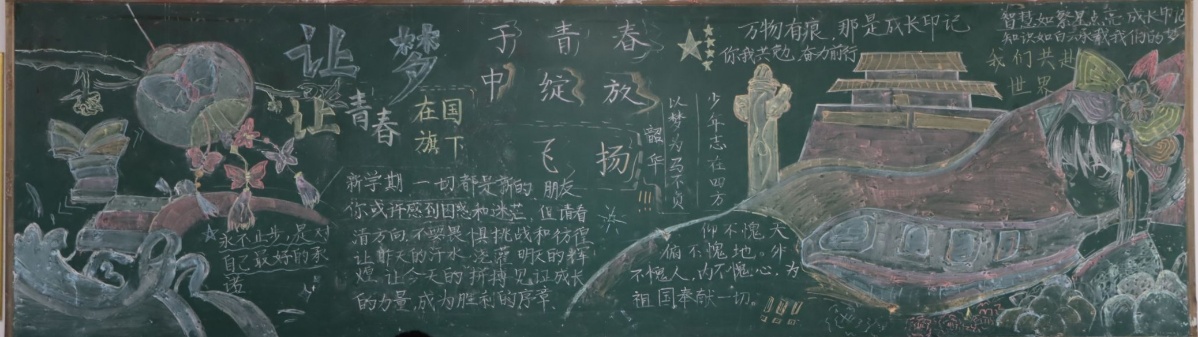 让梦于青春
中绽放
让青春在国旗下
飞扬
新学期一切都是新的,朋友
你或许感到困惑和迷茫,但请看
清方向,不要畏惧挑战和彷徨
让昨天的汗水,浇灌明天的辉
煌,让今天的拼搏见证成长
的力量,成为胜利的序章。
永不止步,是对
自己最好的承
诺
少年志在四方
以梦为马不负
韶华!!!
万物有痕,那是成长印记
你我共勉,奋力前行
智慧如繁星点亮成长印记
知识如白云承载我们的梦
我们共赴
世界
仰不愧天
俯不愧地。外
不愧人,内不愧心,为
祖国奉献一切。
!!!